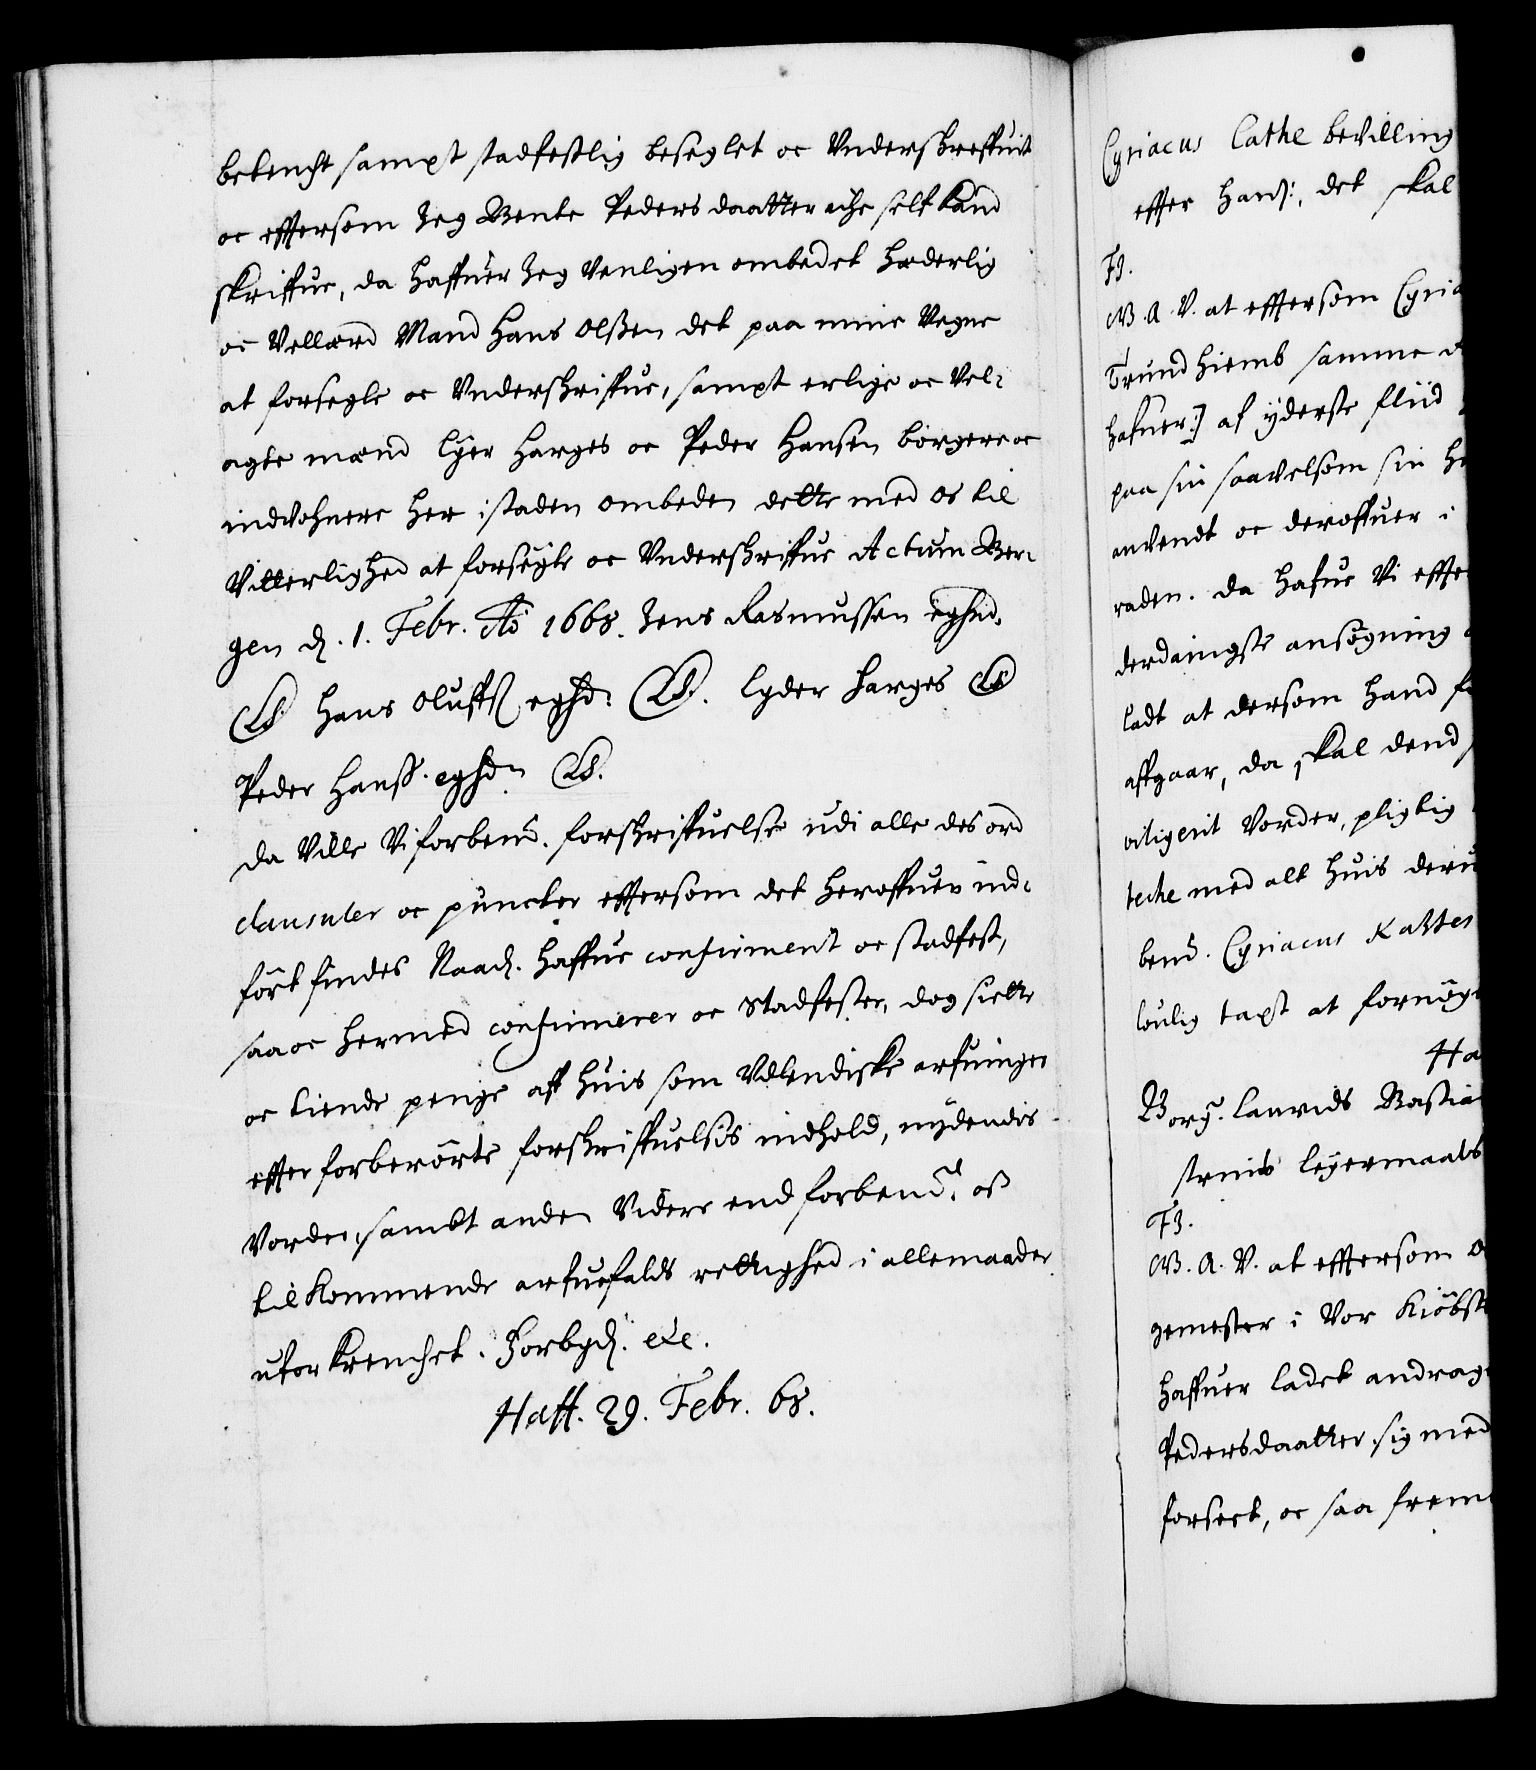 bekreftt sampt stadfestlig beseglet oc Underskreffuit
oc effersom Jeg Bente Peders daatter iche self kand
skriffue, da haffuer Jeg Venligen ombedet hæderlig
oc Vellærd Mand Hans Olßen det paa mine Vegne
at forsegle oc Underskriffue, sampt erlige oc Vel-
agte mænd Lyer Harges oc Peder Hansen borgere oc
indvohnere her i staden ombeden dette med os til
Vitterlighed at forsegle oc Underskriffue Actum Ber-
gen d. 1. Febr. Ao 1668. Jens Rasmussen eghd.
LS Hans Oluffß eghd: LS. Lyder Harges LS
Peder Hanss. eghdn LS.
Da Ville Vi forbend. forskriffuelse udi alle des ord
clausuler oc puncter effersom det heroffuer ind-
fört findes Naad. haffue confirmerit oc stadfest,
saa oc hermed confirmerer oc Stadfester, dog siette
oc tiende penge aff huis som Udlendiske arfuinger
effter forberörte forskriffuelsis indhold, nydendis
Vorder, sambt anden Videre end forbend.t oß
tilkommende arfuefalds rettighed i allemaader
uforkrenchet. Forbyd. etc.
Haff. 29. Febr. 68.
Cyriacus Cathe bevilling
effter Hans: det skal
F3.
W. A. V. at effersom Cyria
Trundhiemb samme
hafuer:] af yderste fliid
paa sin saavelsom sin
anvendt oc deroffuer i
raden. da hafue Vi effte
derdanigste ansögning
ladt at dersom hand
affgaar, da skal dend
viligerit Vorder, pligtig
teche med alt huis deru
bend. Cyriacus Kattes
loulig taxt at fornöye
Ha
Borg. Laurids Bastia
struis leyermaals
F3.
W. A. V. at effersom
gemester i Vor Kiöbst
haffuer ladet andrage
Pedersdaatter sig med
forseet, oc saa frem